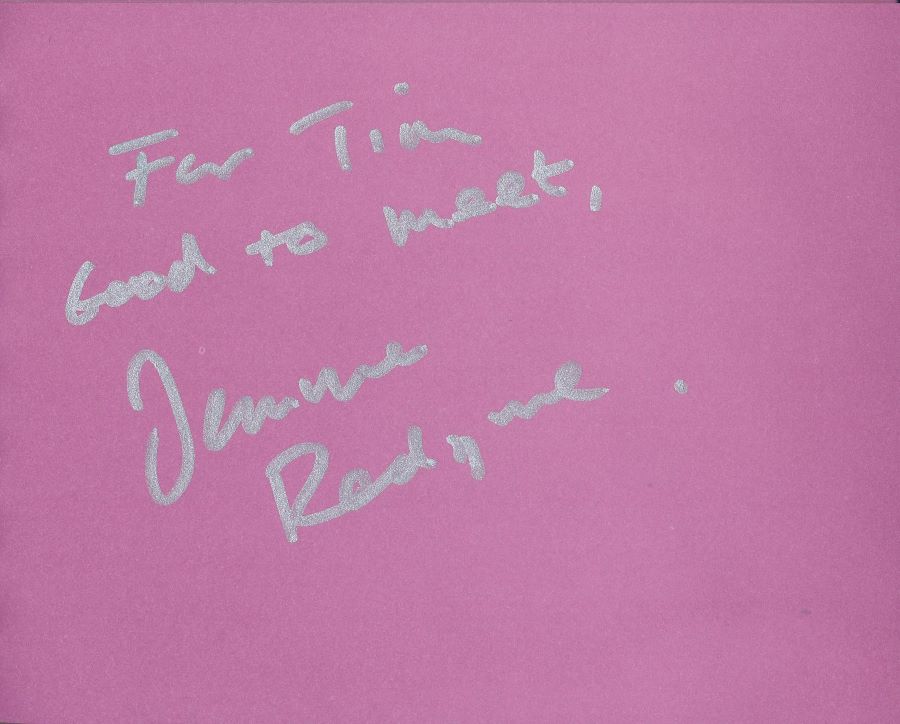 For Tim
Good to meet,
Jemma
Redgrave.